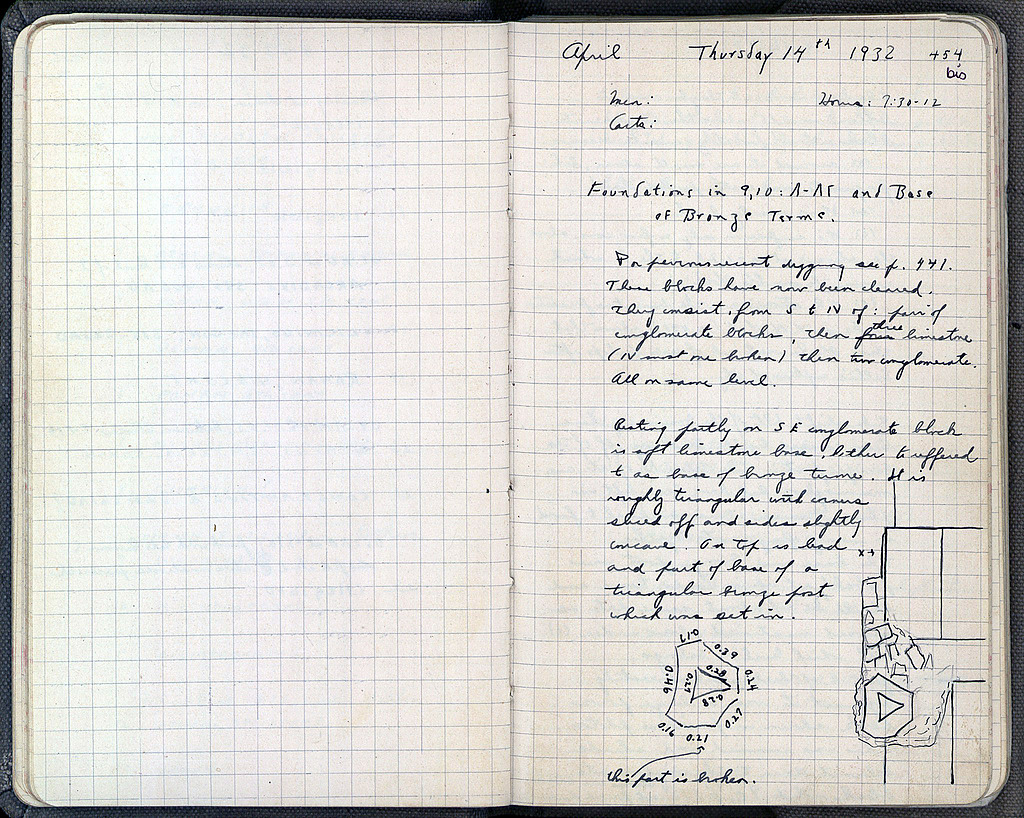 April Thursday 14th 1932 454
bis
Men: Hours: 7:30-12
Carts:
Foundations in 9,10: Λ-ΛΓ and Base
of Bronze Terme.
For previous recent digging see p. 441.
These blocks have now been cleared.
They consist, from S to N of: pair of
conglomerate blocks, then three limestone
(N most one broken) then two conglomerate.
All on same level.
Resting partly on SE conglomerate block
is soft limestone base, hither to referred
to as base of bronze terme. It is
roughly triangular with corners
sliced off and sides slightly
concave. On top is lead
and part of base of a
triangular bronze post
which was set in.
x→
0.17
0.39
0.46 0.27 0.28 0.24
0.28
0.16 0.21 0.27
this part is broken.